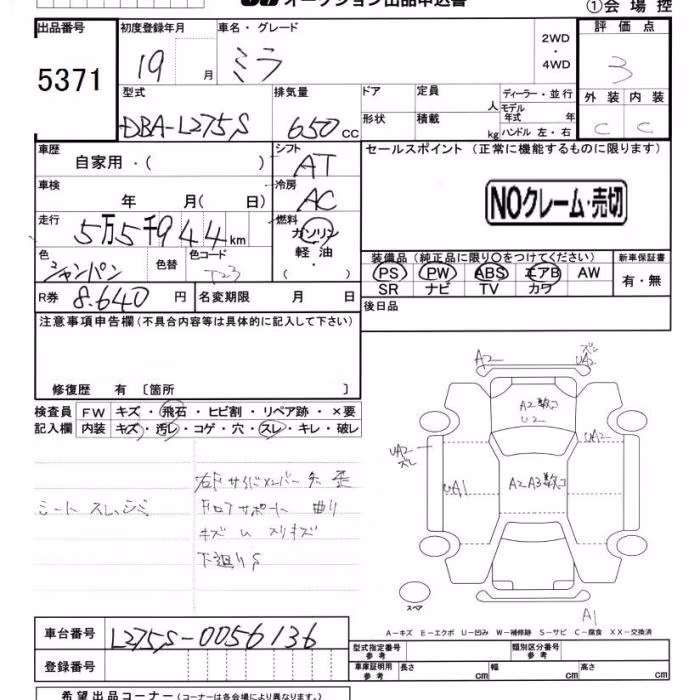 オークション出品申込書 ①会場控
出品番号 5371
初度登録年月 19 月
車名・グレード ミラ
2WD・4WD
評価点 3
外装 C 内装 C
型式 DBA-L275S
排気量 650 cc
ドア 定員 人
形状 積載 kg
ディーラー・並行
モデル年式 年
ハンドル 左・右
車歴 自家用・( )
シフト AT
セールスポイント (正常に機能するものに限ります)
NOクレーム・売切
車検 年 月( 日)
冷房 AC
走行 5万5千944km
燃料 ガソリン 軽油 ( ・ )
色 シャンパン 色替 色コード T23
装備品(純正品に限り○をつけてください) 新車保証書
PS PW ABS エアB AW 有・無
SR ナビ TV カワ
R券 8.640 円 名変期限 月 日
後日品
注意事項申告欄(不具合内容等は具体的に記入して下さい)
修復歴 有 〔箇所 〕
検査員 FW キズ・飛石・ヒビ割・リペア跡・×要
記入欄 内装 キズ・汚レ・コゲ・穴・スレ・キレ・破レ
シート スレ、シミ
フロアサポート 曲り
下廻りS
A2 ズレ UA2
A2数コ
U2
UA2 ズレ
UA2
UA1
A2A3数コ
スペア
A1
A-キズ E-エクボ U-凹み W-補修跡 S-サビ C-腐食 XX-交換済
車台番号 L275S-0056136
登録番号
型式指定番号 参考 類別区分番号 参考
車庫証明用 参考 長さ cm 幅 cm 高さ cm
希望出品コーナー(コーナーは各会場により異なります。)